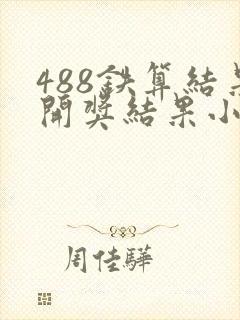 488鉄算結果
開奬結果小
周佳驊